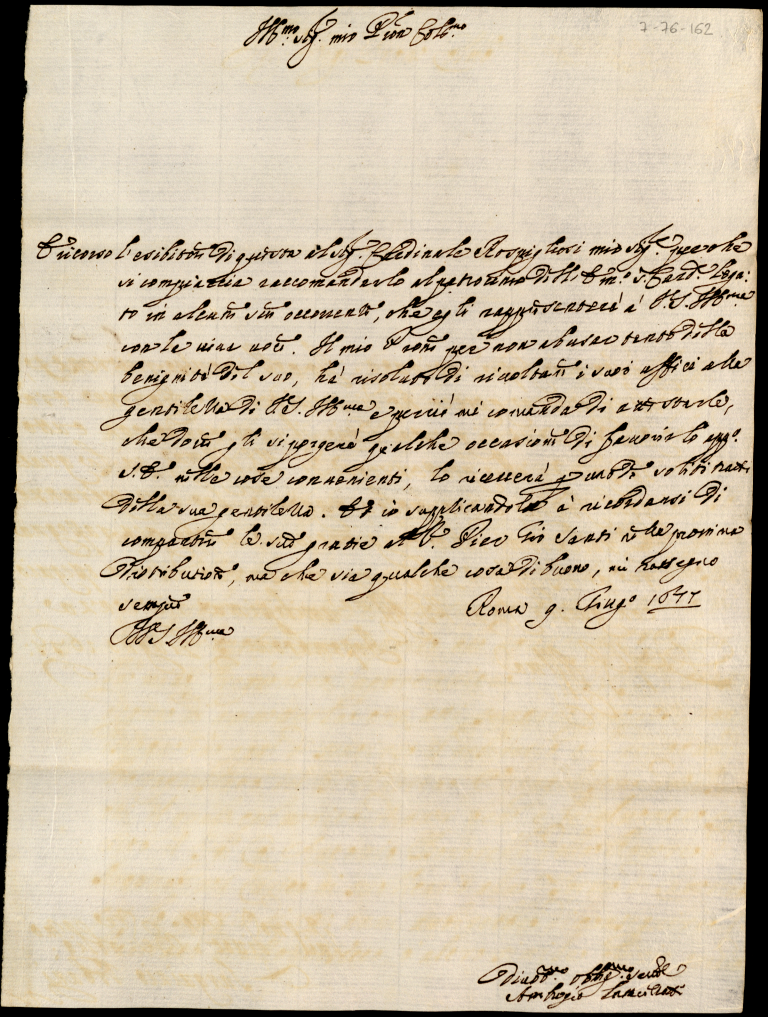 Ill.mo Sig.r mio P.ron Col.mo
7-76-162
È ricorso l'esibitore di questa al Sig.r Cardinale Rospigliosi mio Sig.re perche
si compiaccia raccomandarlo al patrocinio dell' Em.o S. Card.e Lega:
to in alcune sue occorrenze, che egli rappresenterà à V.S. Ill.ma
con le viue uoci. Il mio Prone per non abusar tanto della
benignità del suo, hà risoluto di riuoltare i suoi uffici alla
gentilezza di V.S. Ill.ma e perciò mi comanda di attestarle,
che doue gli si porgerà qualche occasione di fauorirlo app.o
S.E. nelle cose conuenienti, lo riceuerà per uno de soliti tratti
della sua gentilezza. Et io supplicandola à ricordarsi di
compartire le sue gratie al P. Pier Gio Santi nella prossima
Distributione, ma che sia qualche cosa di buono, mi rassegno
sempre
Roma 9. Giug.o 1677
V.S. Ill.ma
Diuot.mo Obblig.mo Seru.re
Ambrogio